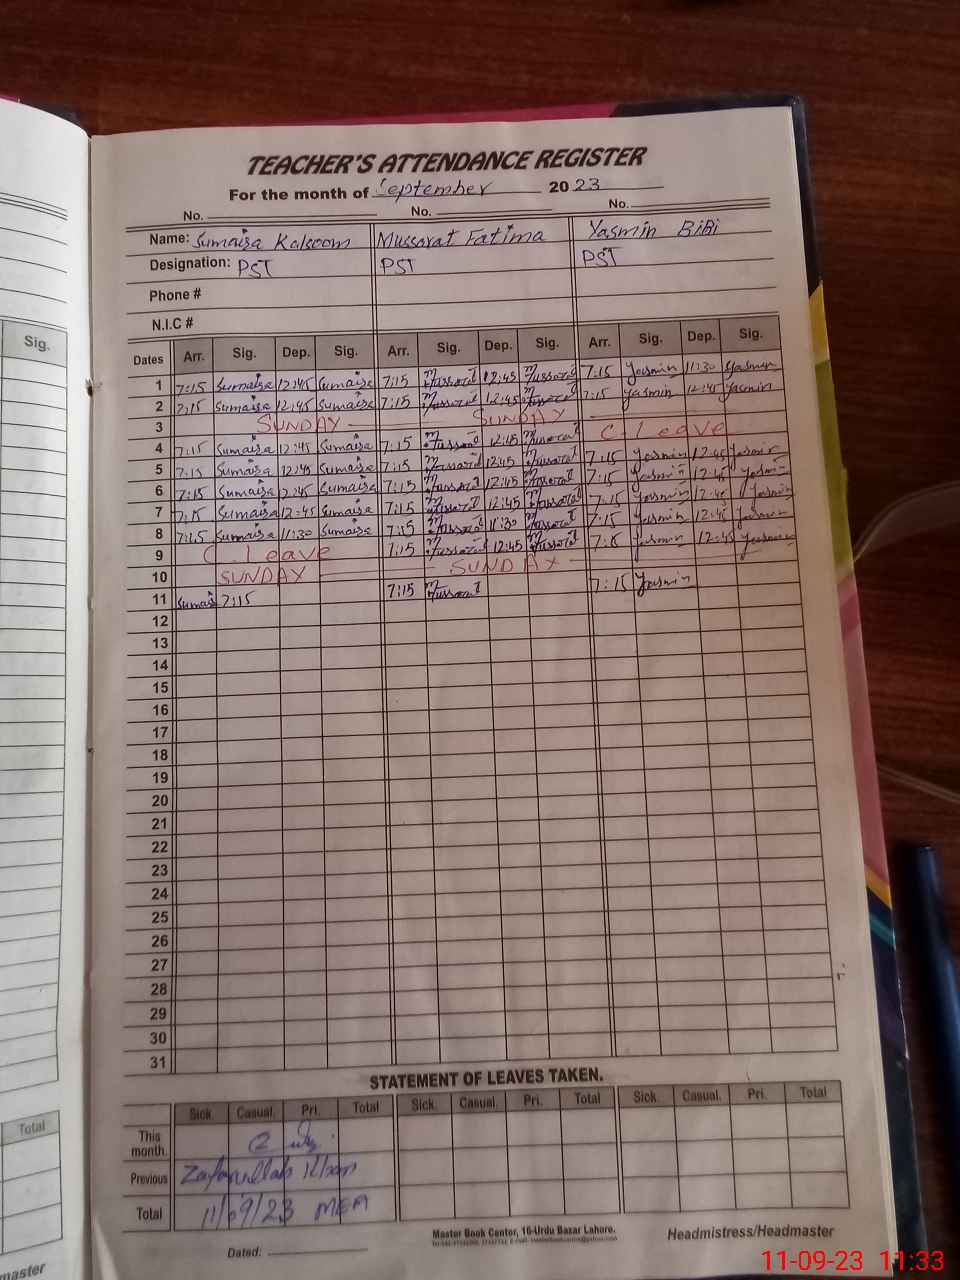 TEACHER'S ATTENDANCE REGISTER
For the month of September 2023
No. No. No.
Name: Sumaisa Kalsoom Mussarat Fatima Yasmin BiBi
Designation: PST PST PST
Phone #
N.I.C #
Sig.
Dates Arr. Sig. Dep. Sig. Arr. Sig. Dep. Sig. Arr. Sig. Dep. Sig.
1 7:15 Sumaisa 12:45 Sumaisa 7:15 Mussarat 12:45 Mussarat 7:15 Yasmin 11:30 Yasmin
2 7:15 Sumaisa 12:45 Sumaisa 7:15 Mussarat 12:45 Mussarat 7:15 Yasmin 12:45 Yasmin
3 SUNDAY SUNDAY
4 7:15 Sumaisa 12:45 Sumaisa 7:15 Mussarat 12:45 Mussarat C Leave
5 7:15 Sumaisa 12:45 Sumaisa 7:15 Mussarat 12:45 Mussarat 7:15 Yasmin 12:45 Yasmin
6 7:15 Sumaisa 12:45 Sumaisa 7:15 Mussarat 12:45 Mussarat 7:15 Yasmin 12:45 Yasmin
7 7:15 Sumaisa 12:45 Sumaisa 7:15 Mussarat 12:45 Mussarat 7:15 Yasmin 12:45 Yasmin
8 7:15 Sumaisa 11:30 Sumaisa 7:15 Mussarat 11:30 Mussarat 7:15 Yasmin 12:45 Yasmin
9 C Leave 7:15 Mussarat 12:45 Mussarat 7:15 Yasmin 12:45 Yasmin
10 SUNDAY SUNDAY
11 Sumais 7:15 7:15 Mussarat 7:15 Yasmin
12
13
14
15
16
17
18
19
20
21
22
23
24
25
26
27
28
29
30
31
STATEMENT OF LEAVES TAKEN.
Sick. Casual. Pri. Total Sick. Casual. Pri. Total Sick. Casual. Pri. Total
This month.
Previous Zafarullah Khan
Total 11/09/23 MEA
Total
Master Book Center, 16-Urdu Bazar Lahore.
Dated: Headmistress/Headmaster
master
11-09-23 11:33